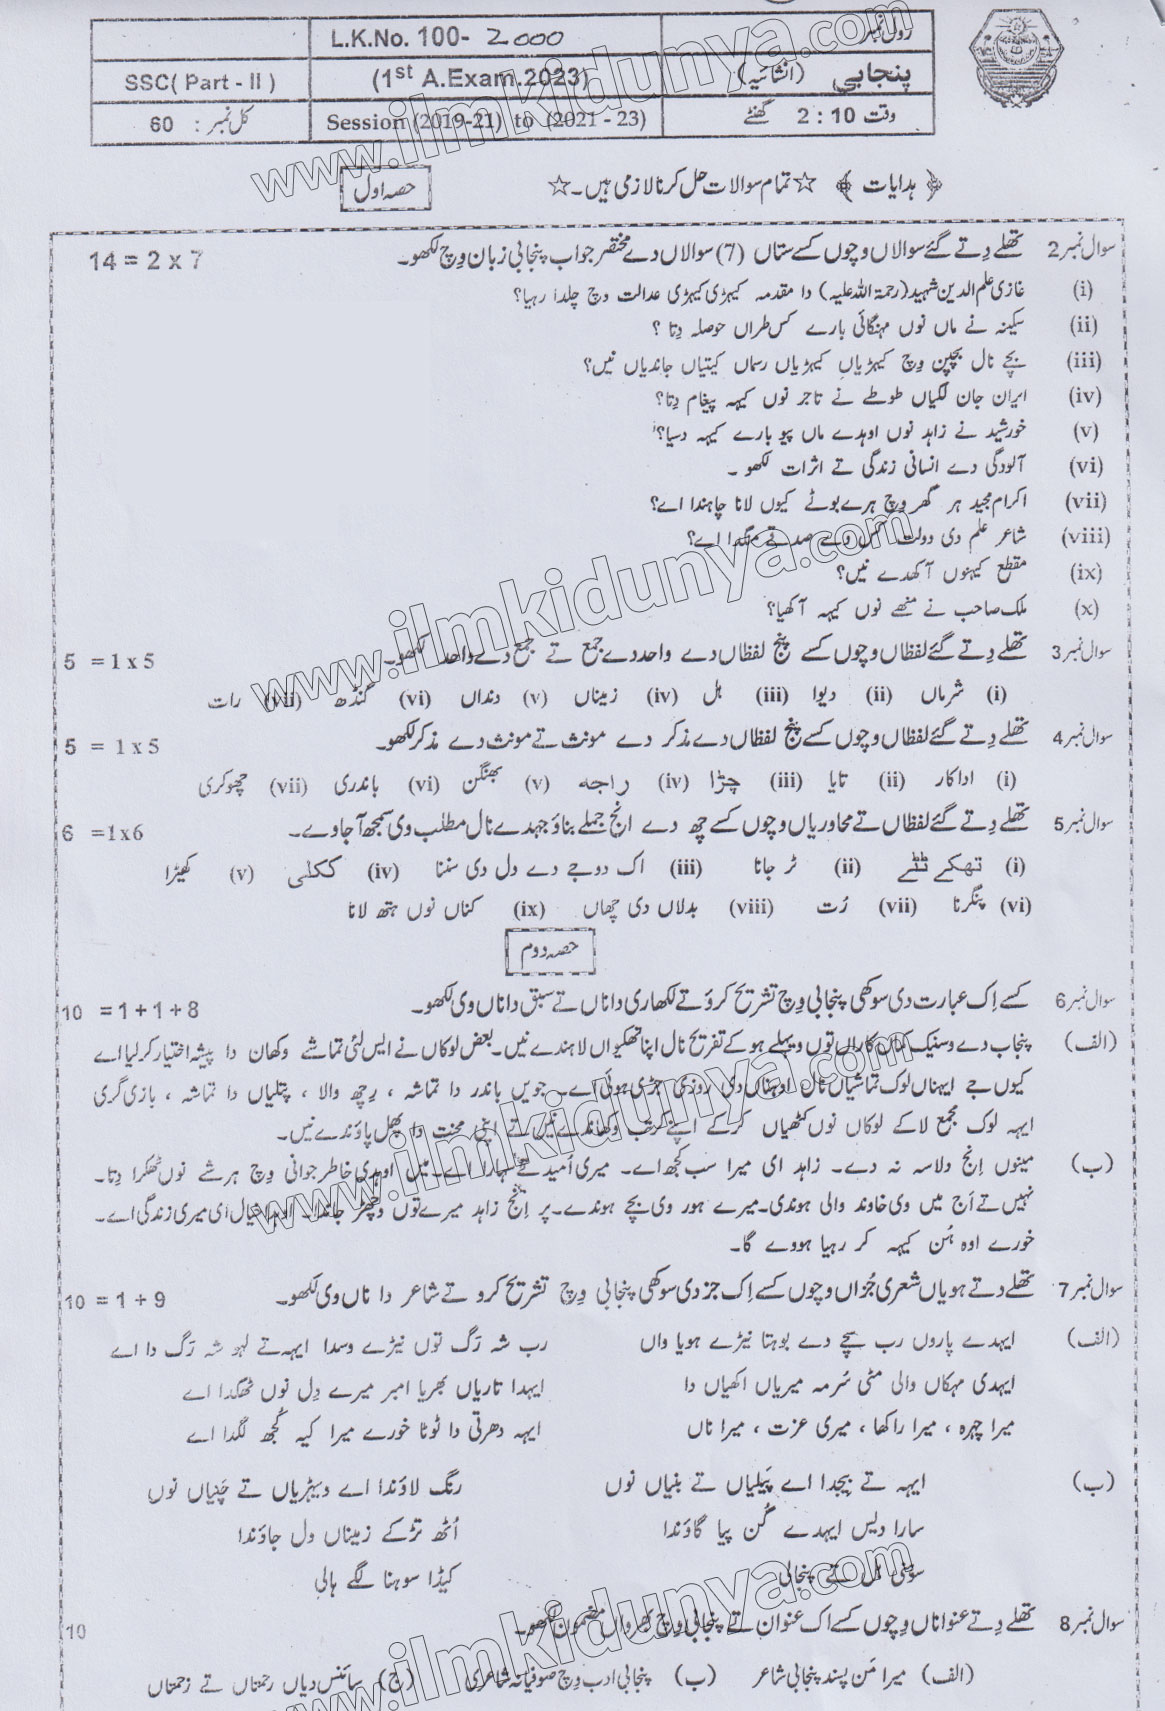 رول نمبر
L.K.No. 100- 2000
پنجابی (انشائیہ)
(1st A.Exam.2023)
SSC( Part - II )
وقت 2 : 10 گھنٹے
Session (2019-21) to (2021 - 23)
کل نمبر : 60
ہدایات ☆ تمام سوالات حل کرنا لازمی ہیں۔☆
حصہ اول
سوال نمبر2 تھلے دِتے گئے سوالاں وچوں کسے ستاں (7) سوالاں دے مختصر جواب پنجابی زبان وِچ لکھو۔ 14 = 2 x 7
(i) غازی علم الدین شہید(رحمۃ اللہ علیہ) دا مقدمہ کیہڑی کیہڑی عدالت وچ چلدا رہیا؟
(ii) سکینہ نے ماں نوں مہنگائی بارے کس طراں حوصلہ دِتا ؟
(iii) بچے نال بچپن وِچ کیہڑیاں کیہڑیاں رسماں کیتیاں جاندیاں نیں؟
(iv) ایران جان لگیاں طوطے نے تاجر نوں کیہہ پیغام دِتا؟
(v) خورشید نے زاہد نوں اوہدے ماں پیو بارے کیہہ دسیا؟
(vi) آلودگی دے انسانی زندگی تے اثرات لکھو ۔
(vii) اکرام مجید ہر گھر وِچ ہرے بوٹے کیوں لانا چاہندا اے؟
(viii) شاعر علم دی دولت کس دے صدقے منگدا اے؟
(ix) مقطع کیہنوں آکھدے نیں؟
(x) ملک صاحب نے منھے نوں کیہہ آکھیا؟
سوال نمبر3 تھلے دِتے گئے لفظاں وچوں کسے پنج لفظاں دے واحد دے جمع تے جمع دے واحد لکھو۔ 5 = 1 x 5
(i) شرماں (ii) دیوا (iii) ہل (iv) زمیناں (v) دنداں (vi) گنڈھ (vii) رات
سوال نمبر4 تھلے دِتے گئے لفظاں وچوں کسے پنج لفظاں دے مذکر دے مونث تے مونث دے مذکر لکھو۔ 5 = 1 x 5
(i) اداکار (ii) تایا (iii) چڑا (iv) راجہ (v) بھنگن (vi) باندری (vii) چھوکری
سوال نمبر5 تھلے دِتے گئے لفظاں تے محاوریاں وچوں کسے چھ دے انج جملے بناؤ جہدے نال مطلب وی سمجھ آجاوے۔ 6 =1x6
(i) تھکے ٹُٹے (ii) ٹر جانا (iii) اک دوجے دے دل دی سننا (iv) ککلی (v) کھیڑا
(vi) پنگرنا (vii) رُت (viii) بدلاں دی چھاں (ix) کناں نوں ہتھ لانا
حصہ دوم
سوال نمبر6 کسے اِک عبارت دی سوکھی پنجابی وِچ تشریح کرؤ تے لکھاری دا ناں تے سبق دا ناں وی لکھو۔ 10 = 1 + 1 + 8
(الف) پنجاب دے وسنیک کماں کاراں توں ویہلے ہو کے تفریح نال اپنا تھکیواں لاہندے نیں۔ بعض لوکاں نے ایس لئی تماشے وکھان دا پیشہ اختیار کر لیا اے
کیوں جے ایہناں لوک تماشیاں نال اوہناں دی روزی جڑی ہوئی اے۔ جویں باندر دا تماشہ ، رِچھ والا ، پتلیاں دا تماشہ ، بازی گری
ایہہ لوک مجمع لا کے لوکاں نوں کٹھیاں کر کے اپنے کرتب وکھاندے نیں تے اپنی محنت دا پھل پاؤندے نیں۔
(ب) مینوں اِنج دلاسہ نہ دے۔ زاہد ای میرا سب کجھ اے۔ میری اُمید تے سہارا اے۔ میں اوہدی خاطر جوانی وچ ہر شے نوں ٹھکرا دِتا۔
نہیں تے اَج میں وی خاوند والی ہوندی۔ میرے ہور وی بچے ہوندے۔ پر اِنج زاہد میرے توں وِچھڑ جاندا۔ اوہدا خیال ای میری زندگی اے۔
خورے اوہ ہُن کیہہ کر رہیا ہووے گا۔
سوال نمبر7 تھلے دتے ہویاں شعری جُزاں وچوں کسے اِک جز دی سوکھی پنجابی وِچ تشریح کرو تے شاعر دا ناں وی لکھو۔ 10 = 1 + 9
(الف) ایہدے پاروں رب سچے دے بوہتا نیڑے ہویا واں رب شہ رَگ توں نیڑے وسدا ایہہ تے لہو شہ رَگ دا اے
ایہدی مہکاں والی مٹی سُرمہ میریاں اکھیاں دا ایہدا تاریاں بھریا امبر میرے دِل نوں ٹھگدا اے
میرا چہرہ ، میرا راکھا ، میری عزت ، میرا ناں ایہہ دھرتی دا ٹوٹا خورے میرا کیہ کُجھ لگدا اے
(ب) ایہہ تے بیجدا اے پَیلیاں تے بنیاں نوں رنگ لاؤندا اے ویہڑیاں تے چَنیاں نوں
سارا دیس ایہدے گُن پیا گاؤندا اُٹھ تڑکے زمیناں ول جاؤندا
سوہنی ہل تے پنجالی کیڈا سوہنا لگے ہالی
سوال نمبر8 تھلے دِتے عنواناں وِچوں کسے اک عنوان تے پنجابی وچ بھرواں مضمون لکھو۔ 10
(الف) میرا مَن پسند پنجابی شاعر (ب) پنجابی ادب وچ صوفیانہ شاعری (ج) سائنس دیاں رحمتاں تے زحمتاں
www.ilmkidunya.com
www.ilmkidunya.com
www.ilmkidunya.com
www.ilmkidunya.com